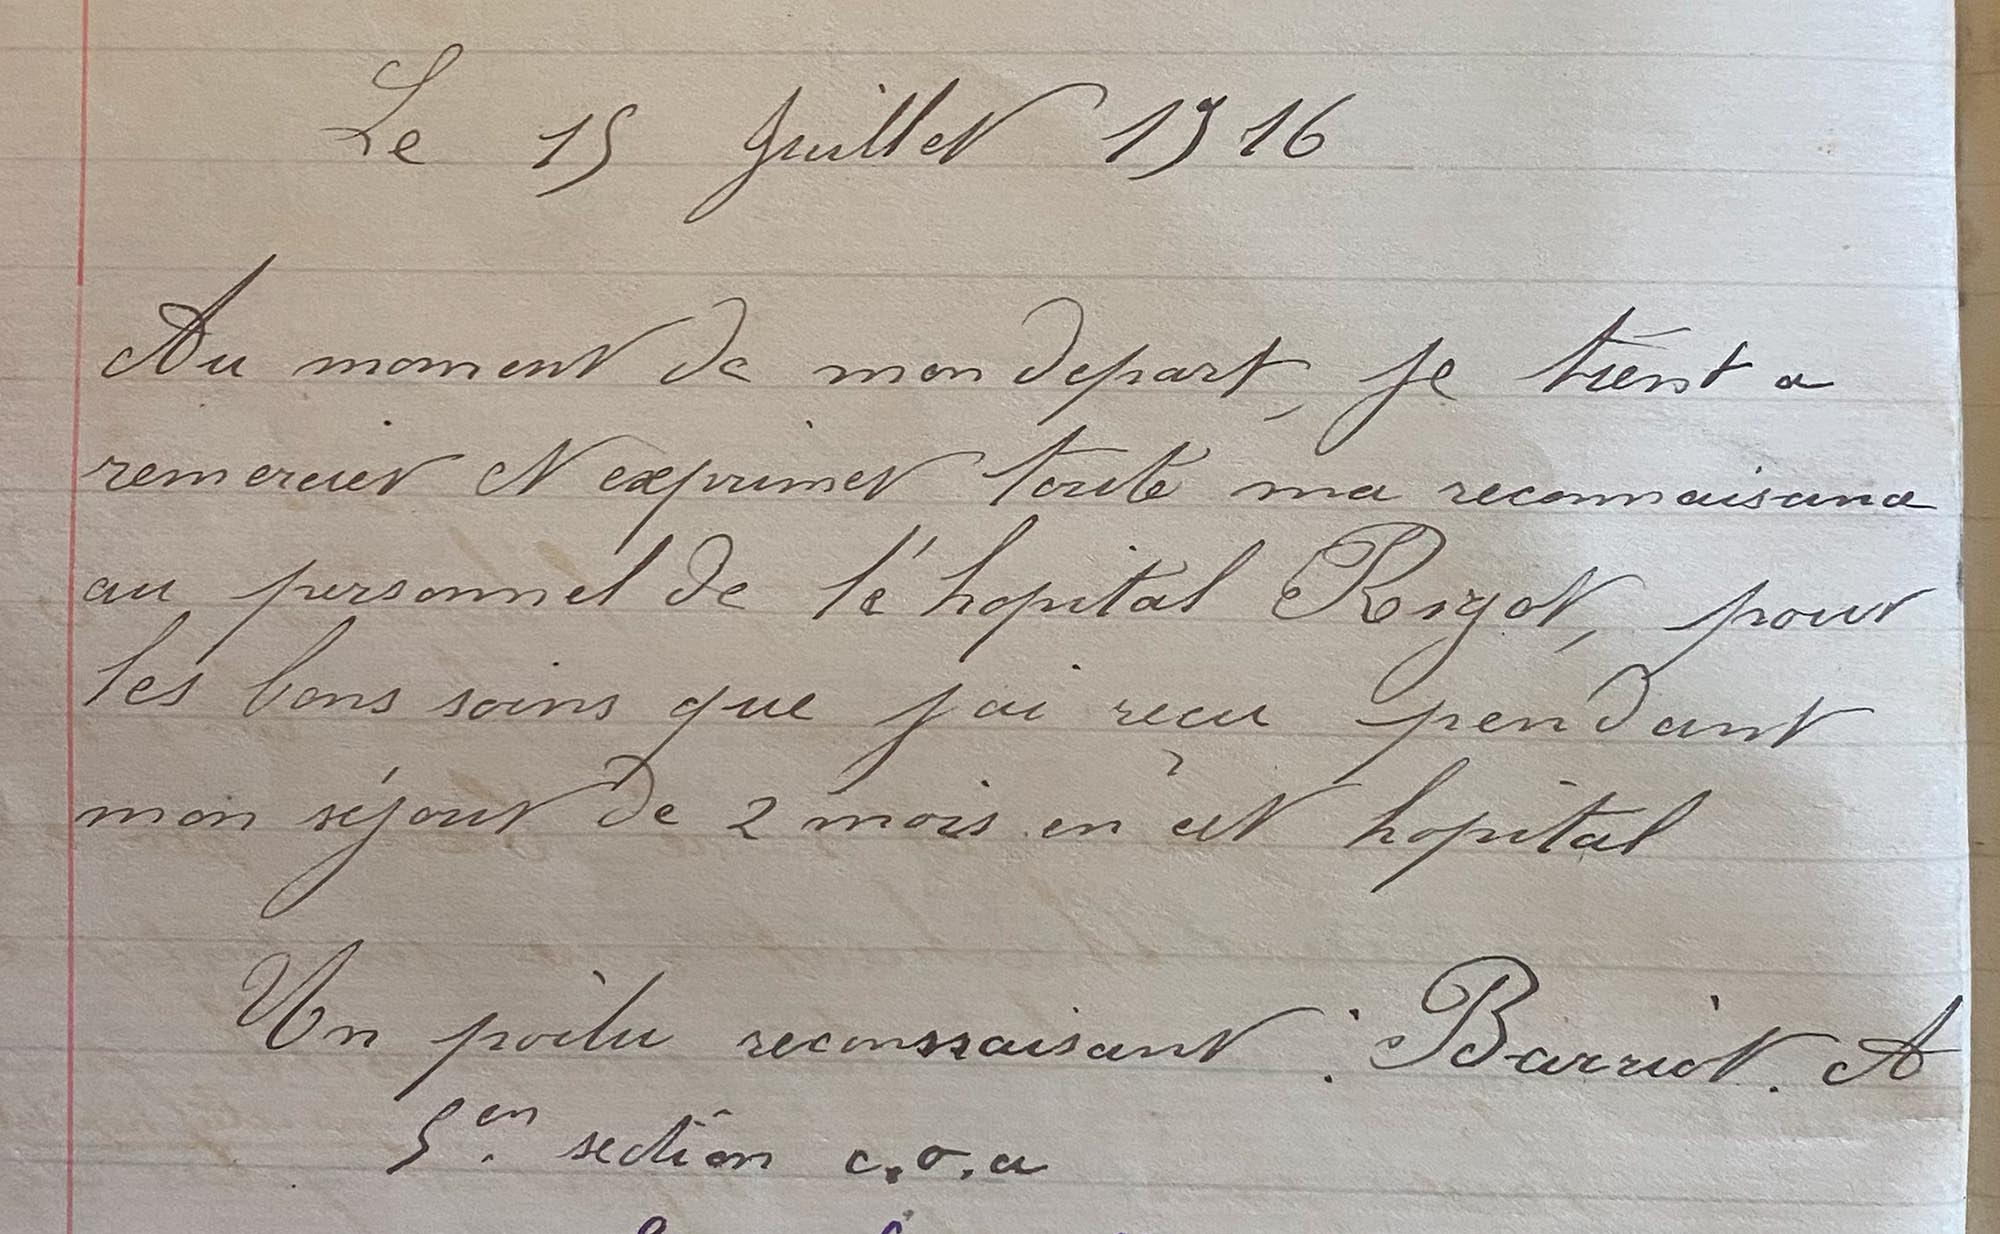 Le 15 Juillet 1916
Au moment de mon depart, je tient a
remercier et exprimer toute ma reconnaisance
au personnel de lé hopital Rigot, pour
les bons soins que j'ai reçu pendant
mon séjour de 2 mois en cet hopital
Un poilu reconnaisant : Barriot. A
5en section c.o.a